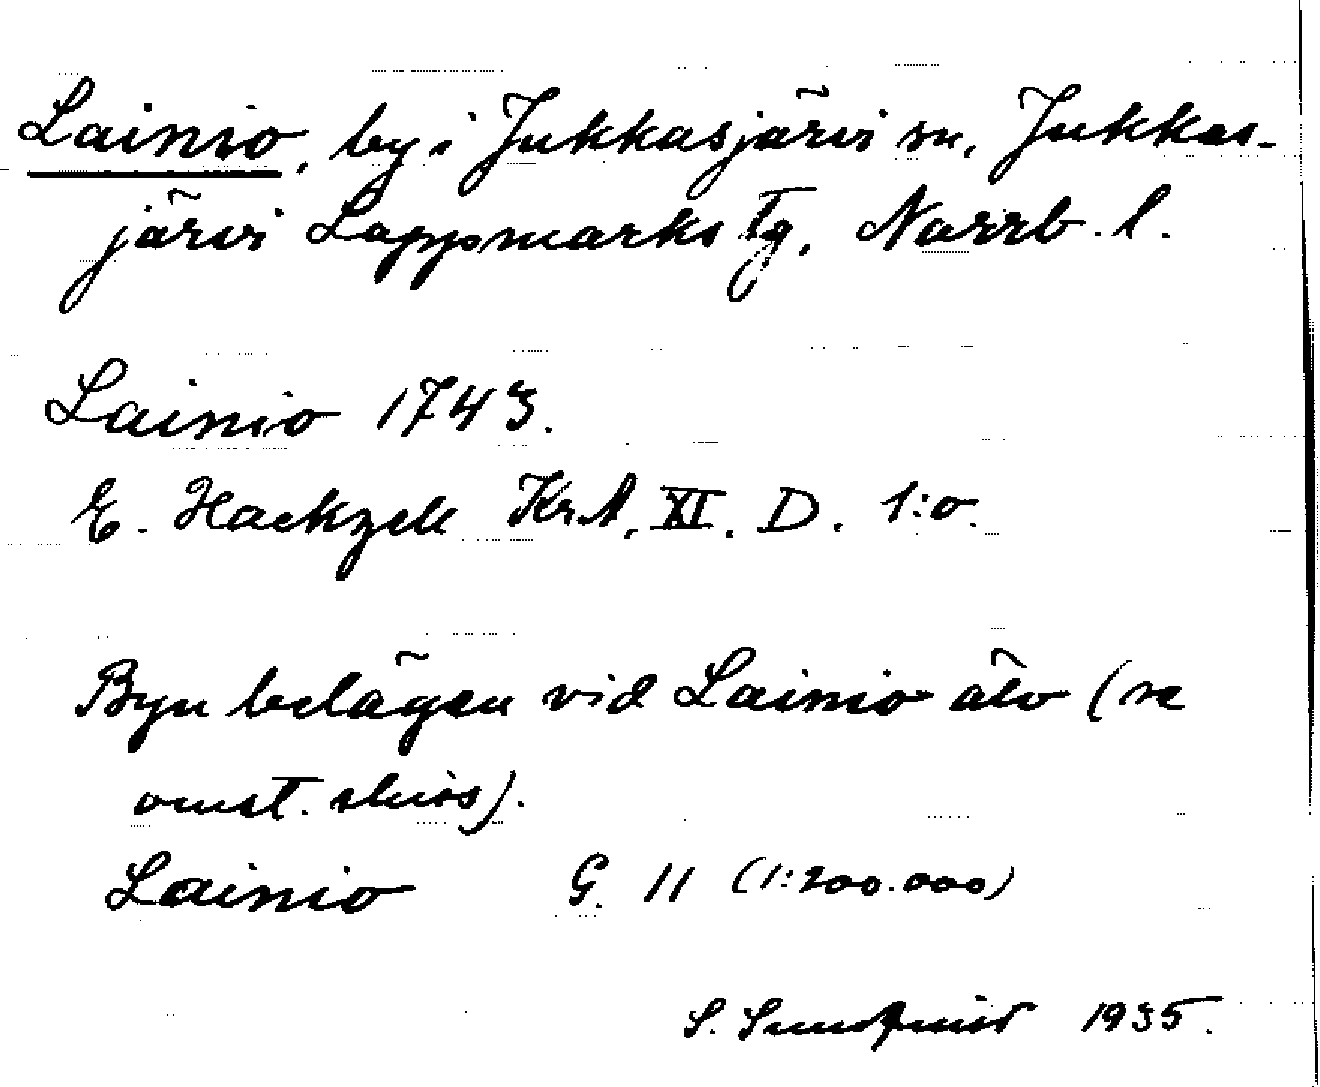 Lainio, by i Jukkasjärvi sn, Jukkas-
järvi Lappmarks tg, Norrb. l.
Lainio 1743.
E. Hackzell Kr.A. XI. D. 1:o.
Byn belägen vid Lainio älv (se
omst. skiss).
Lainio G. 11 (1:200.000)
S. Sundqvist 1935.